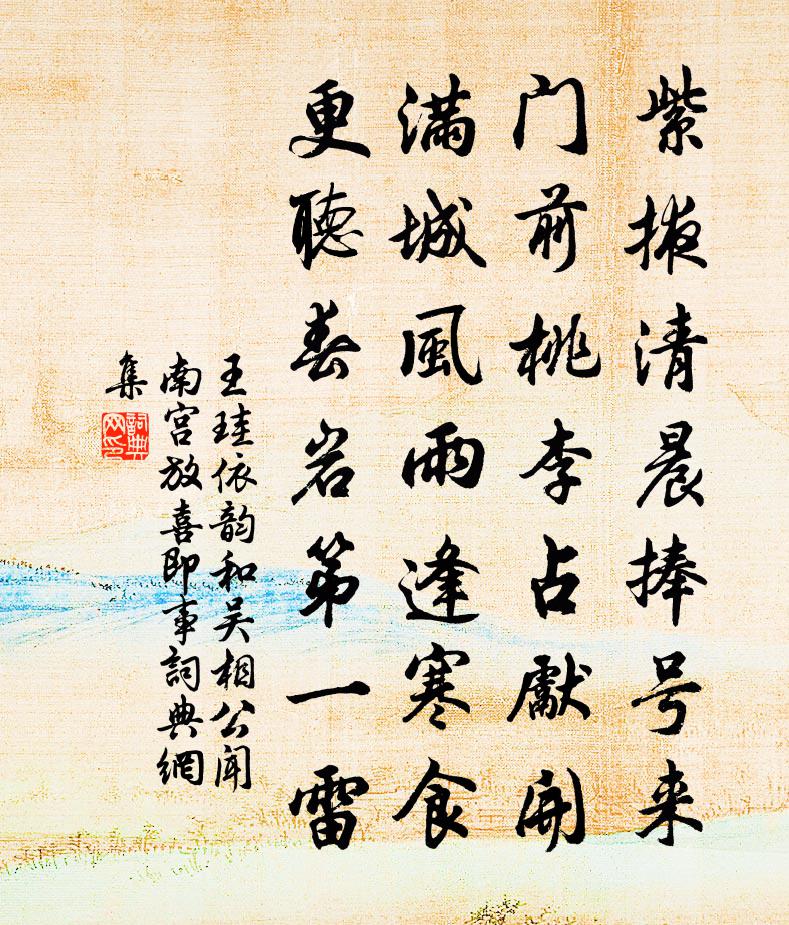 紫掖清晨捧号来
门前桃李占献开
满城風雨逢寒食
更聽春岩第一雷
王珪依韵和吴相公闻
南宫放喜即事詞典網
集
詞典网印